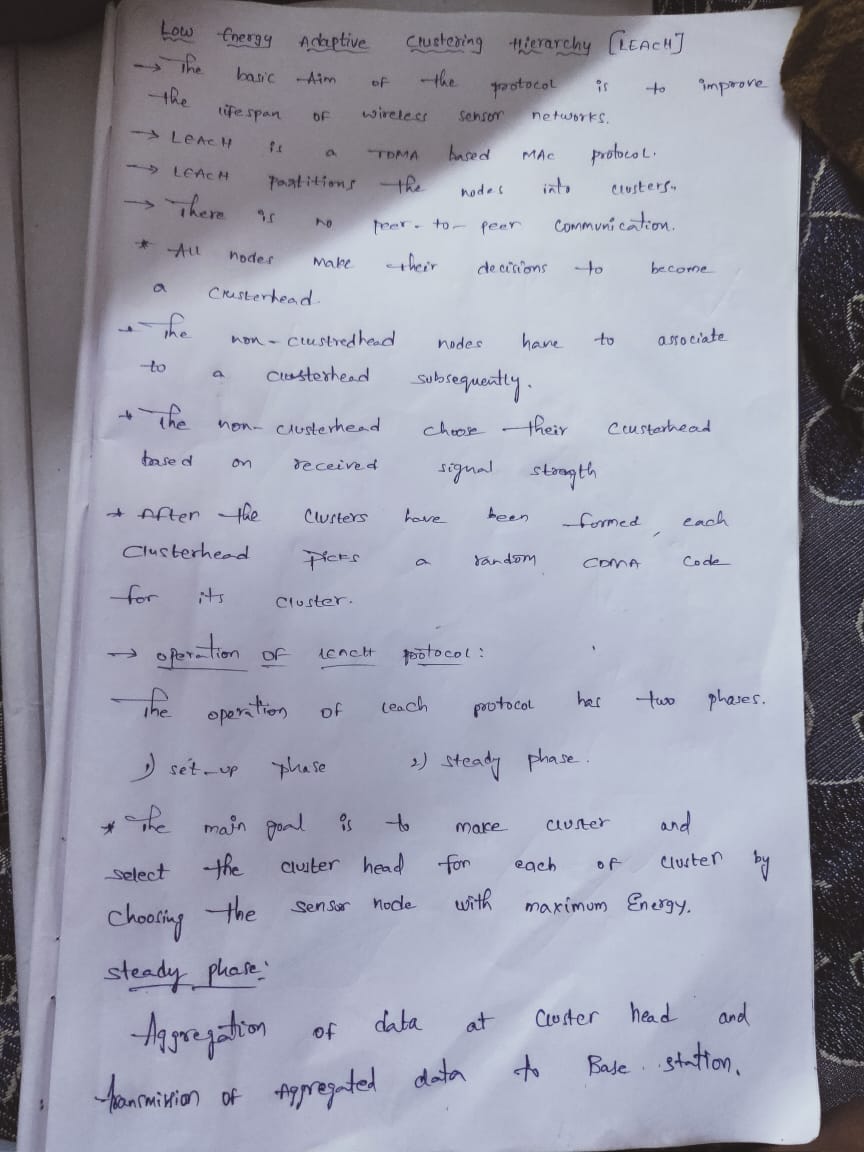 Low Energy Adaptive Clustering Hierarchy [LEACH]
→ The basic Aim of the protocol is to improve
the lifespan of wireless sensor networks.
→ LEACH is a TDMA based MAC protocol.
→ LEACH partitions the nodes into clusters.
→ There is no peer-to-peer communication.
* All nodes make their decisions to become
a clusterhead.
→ The non-clustredhead nodes have to associate
to a clusterhead subsequently.
→ The non-clusterhead choose their clusterhead
based on received signal strength
→ After the clusters have been formed, each
clusterhead picks a random CDMA code
for its cluster.
→ operation of leach protocol:
The operation of leach protocol has two phases.
1) set-up phase 2) steady phase.
* The main goal is to make cluster and
select the cluter head for each of cluster by
choosing the sensor node with maximum Energy.
steady phase:
Aggregation of data at cluster head and
tranmision of Aggregated data to Base station.